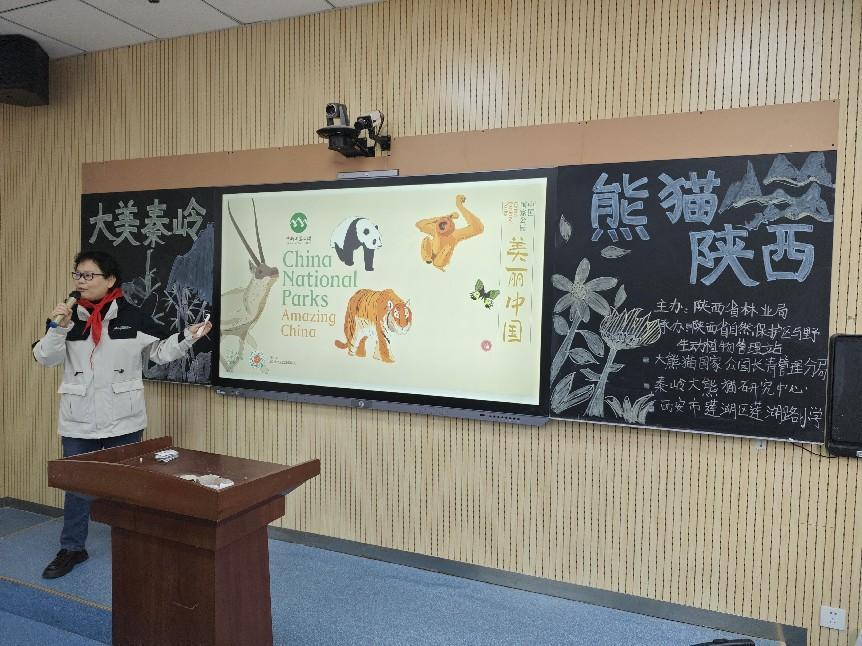 大美秦岭
China
National
Parks
Amazing
China
中国
国家公园
美丽中国
熊猫
陕西
主办:陕西省林业局
承办:陕西省自然保护区与野
生动植物管理站
大熊猫国家公园长青管理分局
秦岭大熊猫研究中心
西安市莲湖区莲湖路小学